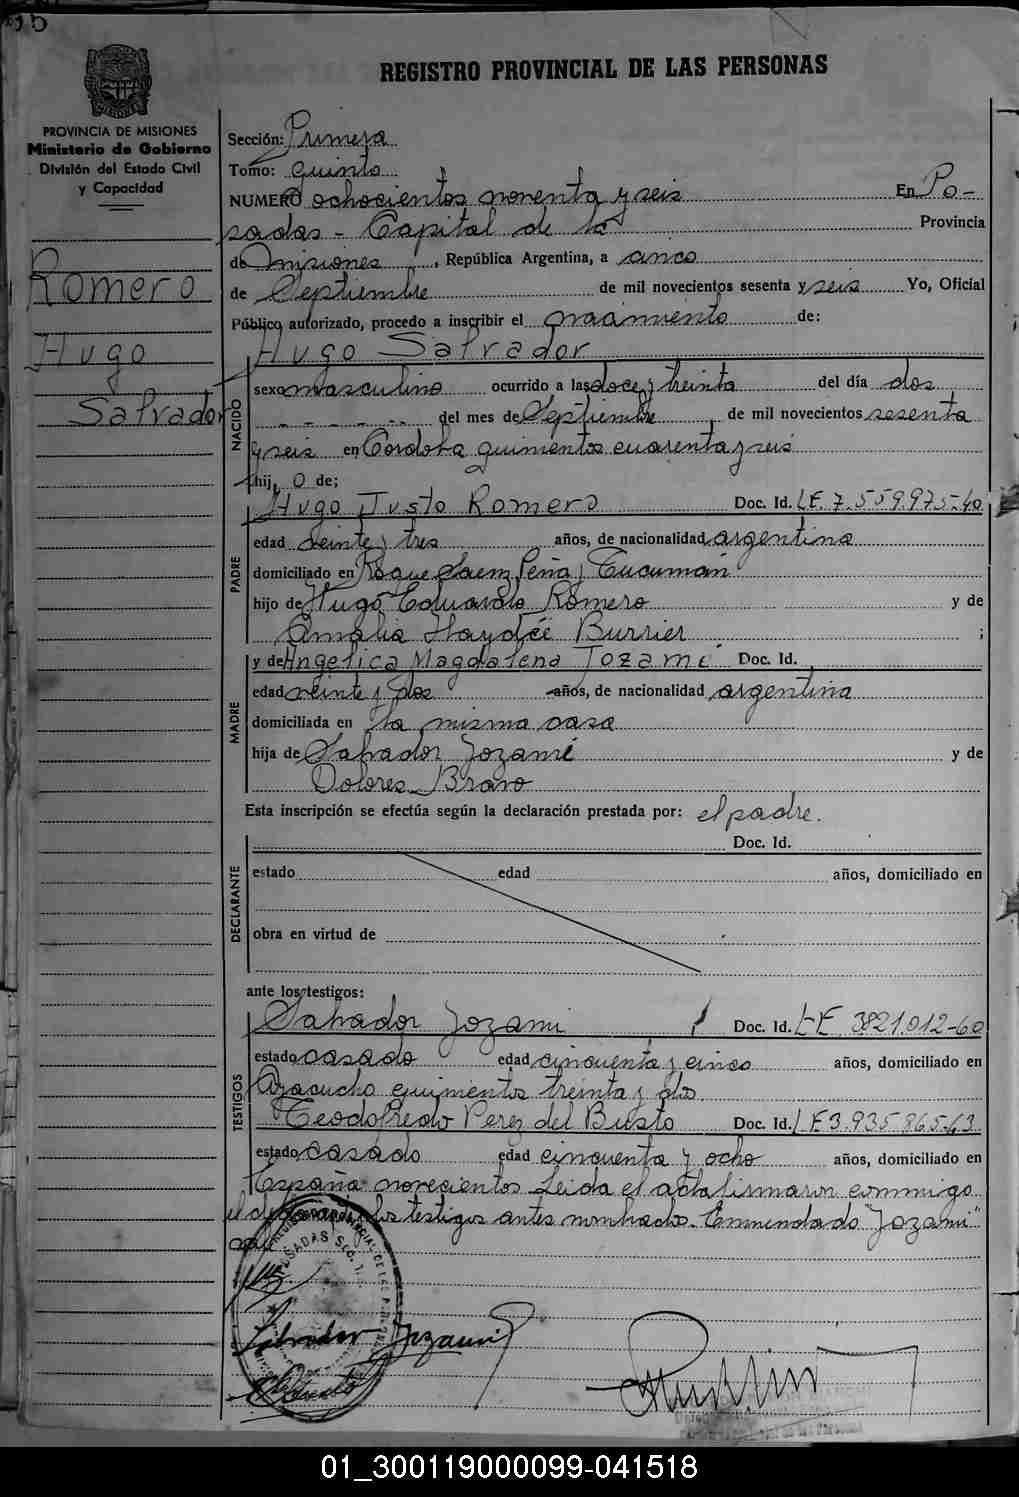 REGISTRO PROVINCIAL DE LAS PERSONAS
PROVINCIA DE MISIONES
Ministerio de Gobierno
División del Estado Civil
y Capacidad
Romero
Hugo
Salvador
Sección: Primera
Tomo: quinto
NUMERO ochocientos noventa y seis En Po-
sadas - Capital de la Provincia
de Misiones, República Argentina, a cinco
de Septiembre de mil novecientos sesenta y seis Yo, Oficial
Público autorizado, procedo a inscribir el nacimiento de:
Hugo Salvador
NACIDO
sexo masculino ocurrido a las doce y treinta del día dos
del mes de Septiembre de mil novecientos sesenta
y seis en Córdoba quinientos cuarenta y seis
hijo de;
PADRE
Hugo Justo Romero Doc. Id. LE. 7.559.975-40
edad veinte y tres años, de nacionalidad argentina
domiciliado en Roque Saenz Peña y Tucumán
hijo de Hugo Eduardo Romero y de
Amalia Haydée Burrier ;
MADRE
y de Angelica Magdalena Jozami Doc. Id.
edad veinte y dos años, de nacionalidad argentina
domiciliada en la misma casa
hija de Salvador Jozami y de
Dolores Bravo
Esta inscripción se efectúa según la declaración prestada por: el padre.
DECLARANTE
Doc. Id.
estado edad años, domiciliado en
obra en virtud de
ante los testigos:
TESTIGOS
Salvador Jozami Doc. Id. LE 3821.012-60
estado casado edad cincuenta y cinco años, domiciliado en
Ayacucho quinientos treinta y dos
Teodofredo Perez del Busto Doc. Id. LE 3.935.865-63
estado casado edad cincuenta y ocho años, domiciliado en
España novecientos Leida el acta firmaron conmigo
el los testigos antes nombrados. Enmendado "Jozami"
Salvador Jozami
01_300119000099-041518